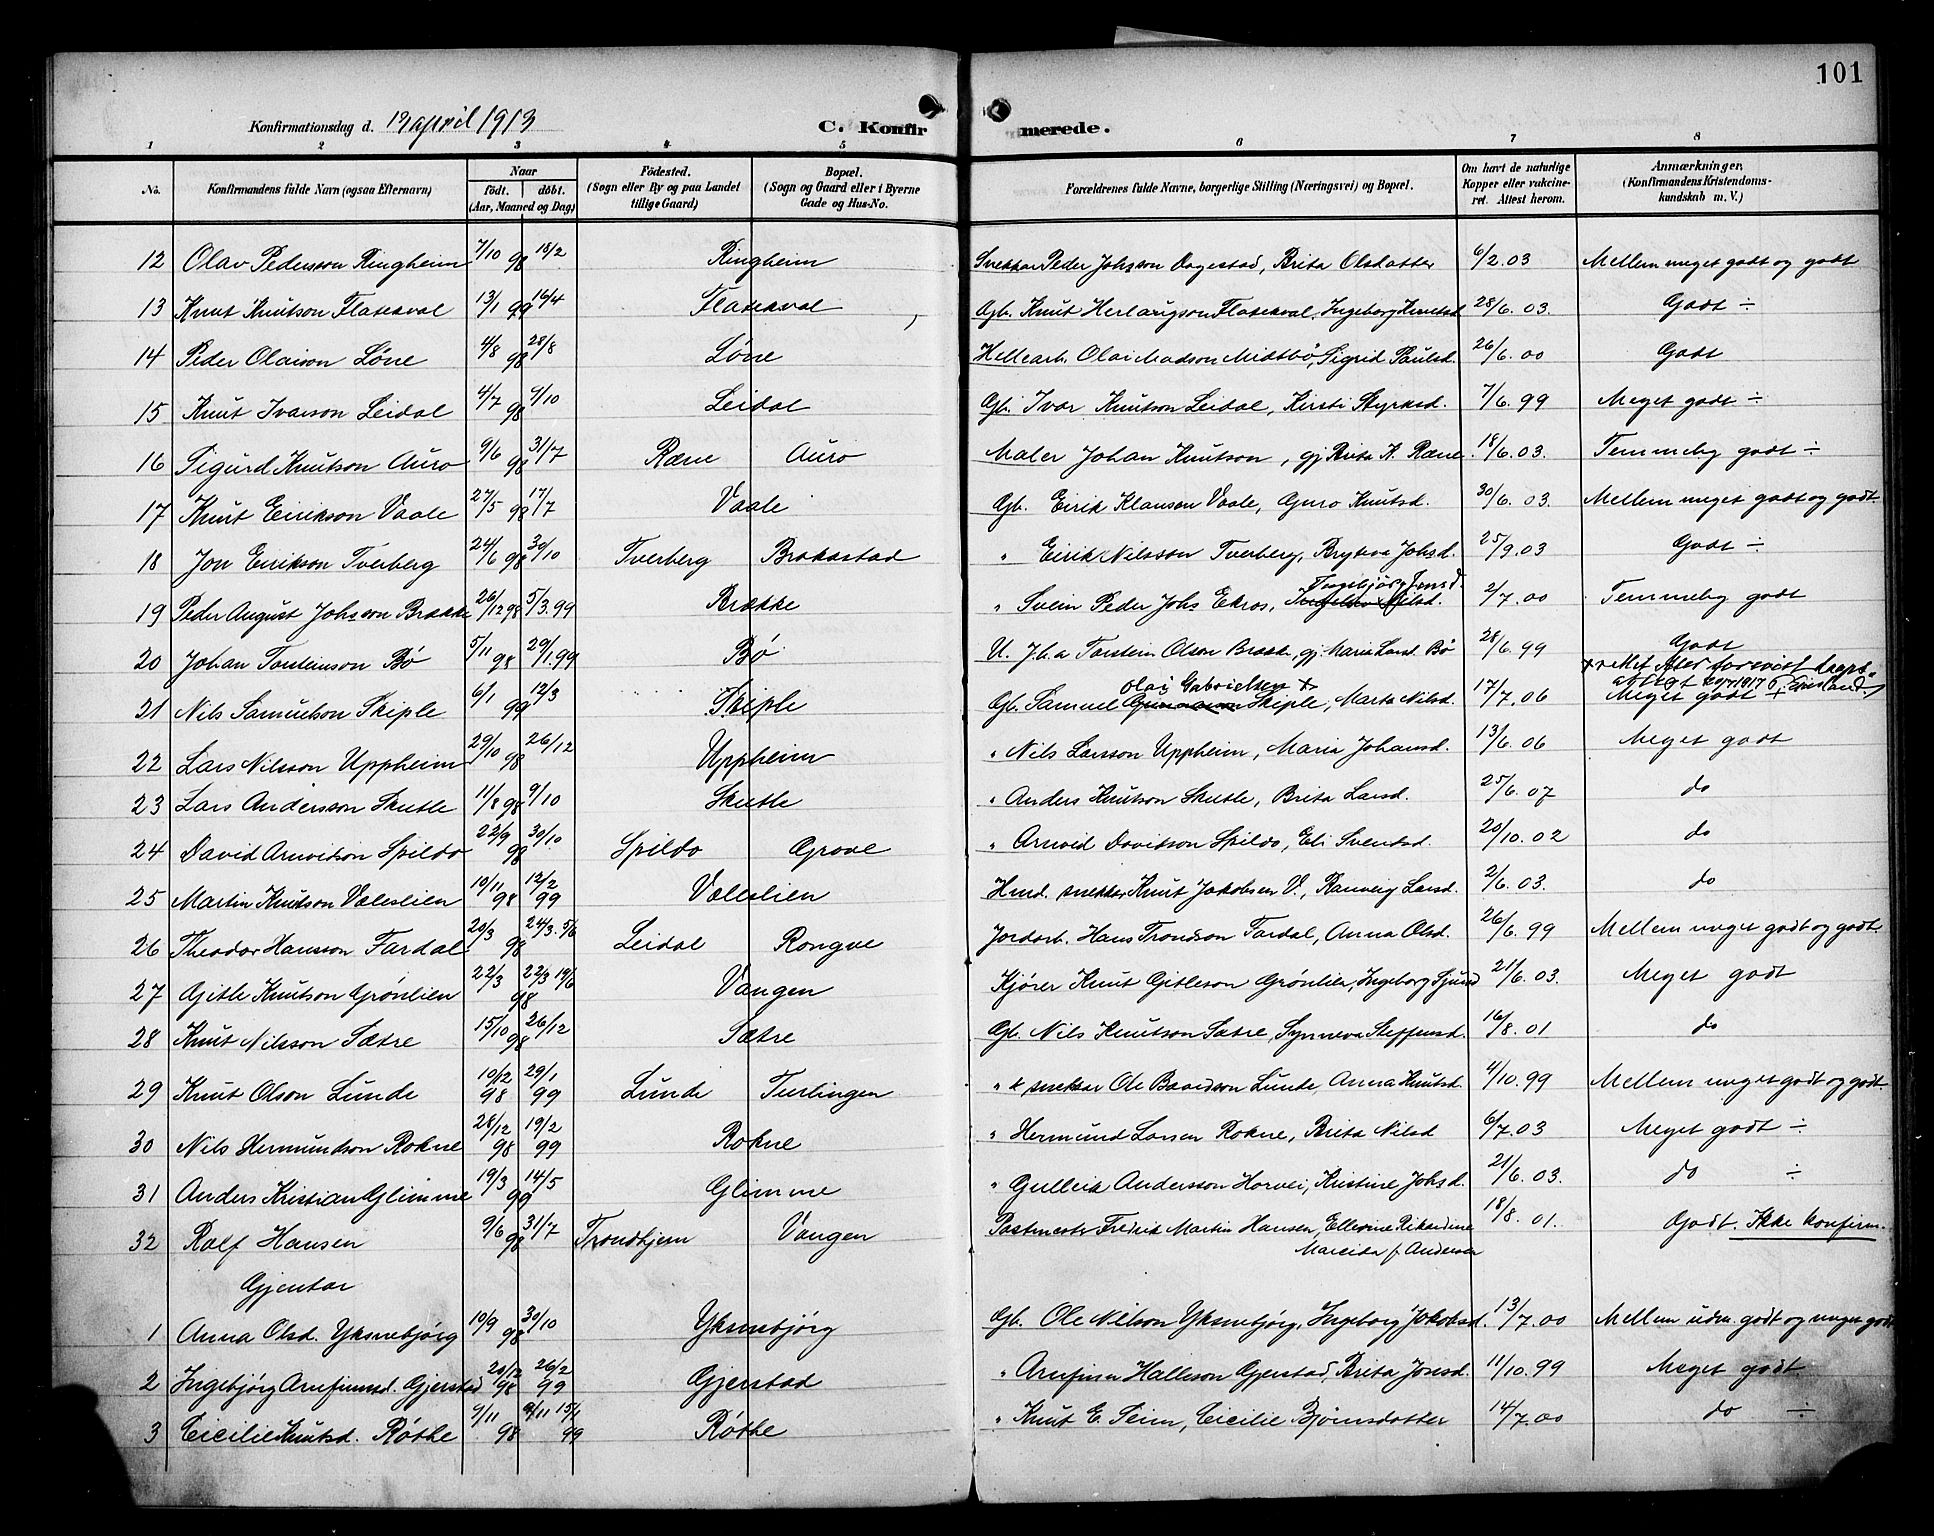 101
Konfirmationsdag d. 13 april 1913 C. Konfirmerede.
1 2 3 4 5 6 7 8
No. Konfirmandens fulde Navn (ogsaa Efternavn) Naar født. døbt. (Aar, Maaned og Dag) Fødested. (Sogn eller By og paa Landet tillige Gaard) Bopæl. (Sogn og Gaard eller i Byerne Gade og Hus-No. Forældrenes fulde Navne, borgerlige Stilling (Næringsvei) og Bopæl. Om havt de naturlige Kopper eller vakcineret. Attest herom. Anmærkninger, (Konfirmandens Kristendomskundskab m. V.)
12 Olav Pedersson Ringheim 7/10 98 18/2 Ringheim Snekker Peder Johsson Dagestad, Brita Olsdatter 6/2.03 Mellem meget godt og godt
13 Knut Knutson Flatekval 13/1 99 16/4 Flatekval Gb. Knut Herlaugson Flatekval, Ingeborg Knutsd. 28/6.03. Godt ÷
14 Peder Olaison Løne 4/8 98 28/8 Løne Hellearb. Olai Madson Midtbø, Sigrid Paulsd. 26/6.00 Godt
15 Knut Ivarson Leidal 4/7 98 9/10 Leidal Gb. Ivar Knutson Leidal, Kirsti Styrksd. 7/6.99 Meget godt ÷
16 Sigurd Knutson Auro 9/6 98 31/7 Ræne Auro Maler Johan Knutson, gj Brita K. Ræne. 18/6.03. Temmeleg godt ÷
17 Knut Eirikson Vaale 27/5 98 17/7 Vaale Gb. Eirik Klausen Vaale, Guro Knutsd. 30/6.03. Mellem meget godt og godt.
18 Jon Eirikson Tverberg 24/6 98 30/10 Tverberg Brakastad " Eirik Nilsson Tverberg, Bryteva Johsd. 25/9.03 Godt ÷
19 Peder August Johsson Brække 26/12 98 5/3.99 Brække " Svein Peder Johs Ekros, Ingebjörg Jensd. 2/7.00 Temmeleg godt
20 Johan Torsteinson Bø 5/11 98 29/1.99 Bø U. J.b.a Torstein Olson Brække, gj. Maria Larsd. Bø 28/6.99 Godt
21 Nils Samuelson Skiple 6/1 99 12/3 Skiple Gb. Samuel Olai Gabrielsen + Skiple, Marta Nilsd. 17/7.06 Meget godt
22 Lars Nilsson Uppheim 29/10 98 26/12 Uppheim " Nils Larsson Uppheim, Maria Johansd. 13/6.06 Meget godt
23 Lars Andersson Skutle 11/8 98 9/10 Skutle " Anders Knutson Skutle, Brita Larsd. 25/6.07 do
24 David Arnvidson Spildo 22/9 98 30/10 Spildo Grove " Arnvid Davidson Spildo, Eli Svendsd. 20/10.02 do
25 Martin Knutson Væleslien 10/11 98 12/2 99 Væleslien Husd. snekker Knut Jakobsen V., Ranveig Larsd. 2/6.03. do
26 Theodor Hansson Fardal 20/3 98 24/3. 5/6 Leidal Rongve Jordarb. Hans Trondson Fardal, Anna Olsd. 26/6.99 Mellem meget godt og godt.
27 Gitle Knutson Grønlien 22/3 98 22/3 19/6 Vangen Kjører Knut Gitleson Grønlien, Ingeborg Sjursd 21/6.03. Meget godt
28 Knut Nilsson Sætre 15/10 98 26/12 Sætre Gb. Nils Knutson Sætre, Synneva Steffensd. 16/8.01 do
29 Knut Olson Lunde 10/2 98 29/1 99 Lunde Tverlingen " & snekker Ole Bavidson Lunde, Anna Knutsd. 4/10.99 Mellem meget godt og godt.
30 Nils Hermundson Rokne 28/12 98 19/2 99 Rokne " Hermund Larsen Rokne, Brita Nilsd 6/7.03 Meget godt ÷
31 Anders Kristian Glimme 19/3 99 14/5 Glimme " Gulleik Andersson Horvei, Kristine Johsd. 21/6.03. do ÷
32 Ralf Hansen 9/6 98 31/7 Trondhjem Vangen Postmester Fredrik Martin Hansen, Ellevine Rikardine 18/8.01. Godt. Ikke konfirm.
Marcita f. Andersen
Gjentor
1 Anna Olsd. Yksnebjørg 10/9 98 30/10 Yksnebjørg Gb. Ole Nilson Yksnebjørg, Ingeborg Jakobsd. 13/7.00 Mellem udm. godt og meget godt
2 Ingebjørg Arnfinnsd. Gjerstad 20/12 98 26/2 99 Gjerstad " Arnfinn Halleson Gjerstad, Brita Jonsd. 11/10.99 Meget godt.
3 Cicilie Knutsd. Røthe 9/11 98 9/11 15/1 99 Røthe " Knut E. Seim, Cicilie Bjørnsdotter 14/7.00 do ÷